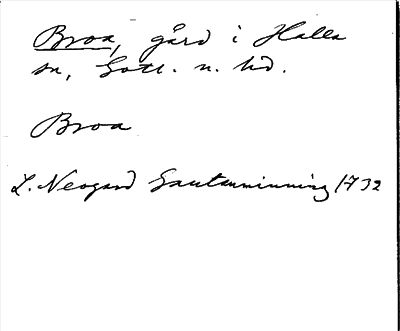 Broa, gård i Halla
sn, Gotl. n. hd.
Broa
L. Neogard Gautauminning 1732